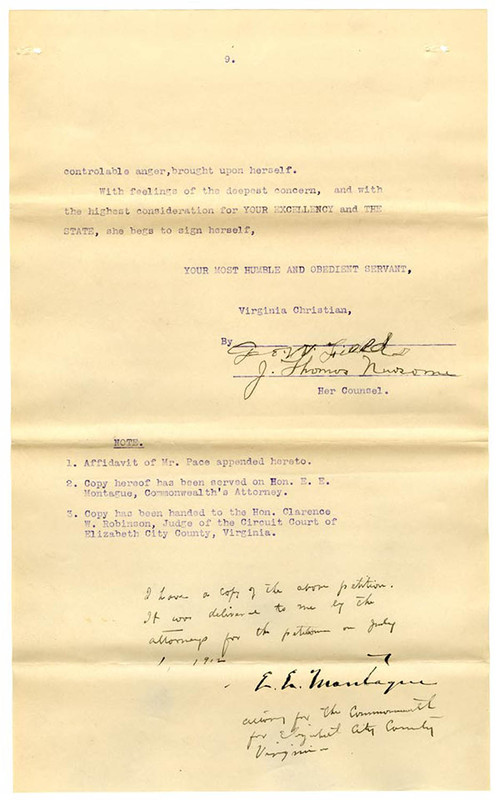 9.
controlable anger,brought upon herself.
With feelings of the deepest concern, and with
the highest consideration for YOUR EXCELLENCY and THE
STATE, she begs to sign herself,
YOUR MOST HUMBLE AND OBEDIENT SERVANT,
Virginia Christian,
By
Fields
J. Thomas Newsome
Her Counsel.
NOTE.
1. Affidavit of Mr. Pace appended hereto.
2. Copy hereof has been served on Hon. E. E.
Montague, Commonwealth's Attorney.
3. Copy has been handed to the Hon. Clarence
W. Robinson, Judge of the Circuit Court of
Elizabeth City County, Virginia.
I have a copy of the above petition.
It was delivered to me by the
attorneys for the petitioner on July
1, 1912
E. E. Montague
attorney for the Commonwealth
for Elizabeth City County
Virginia